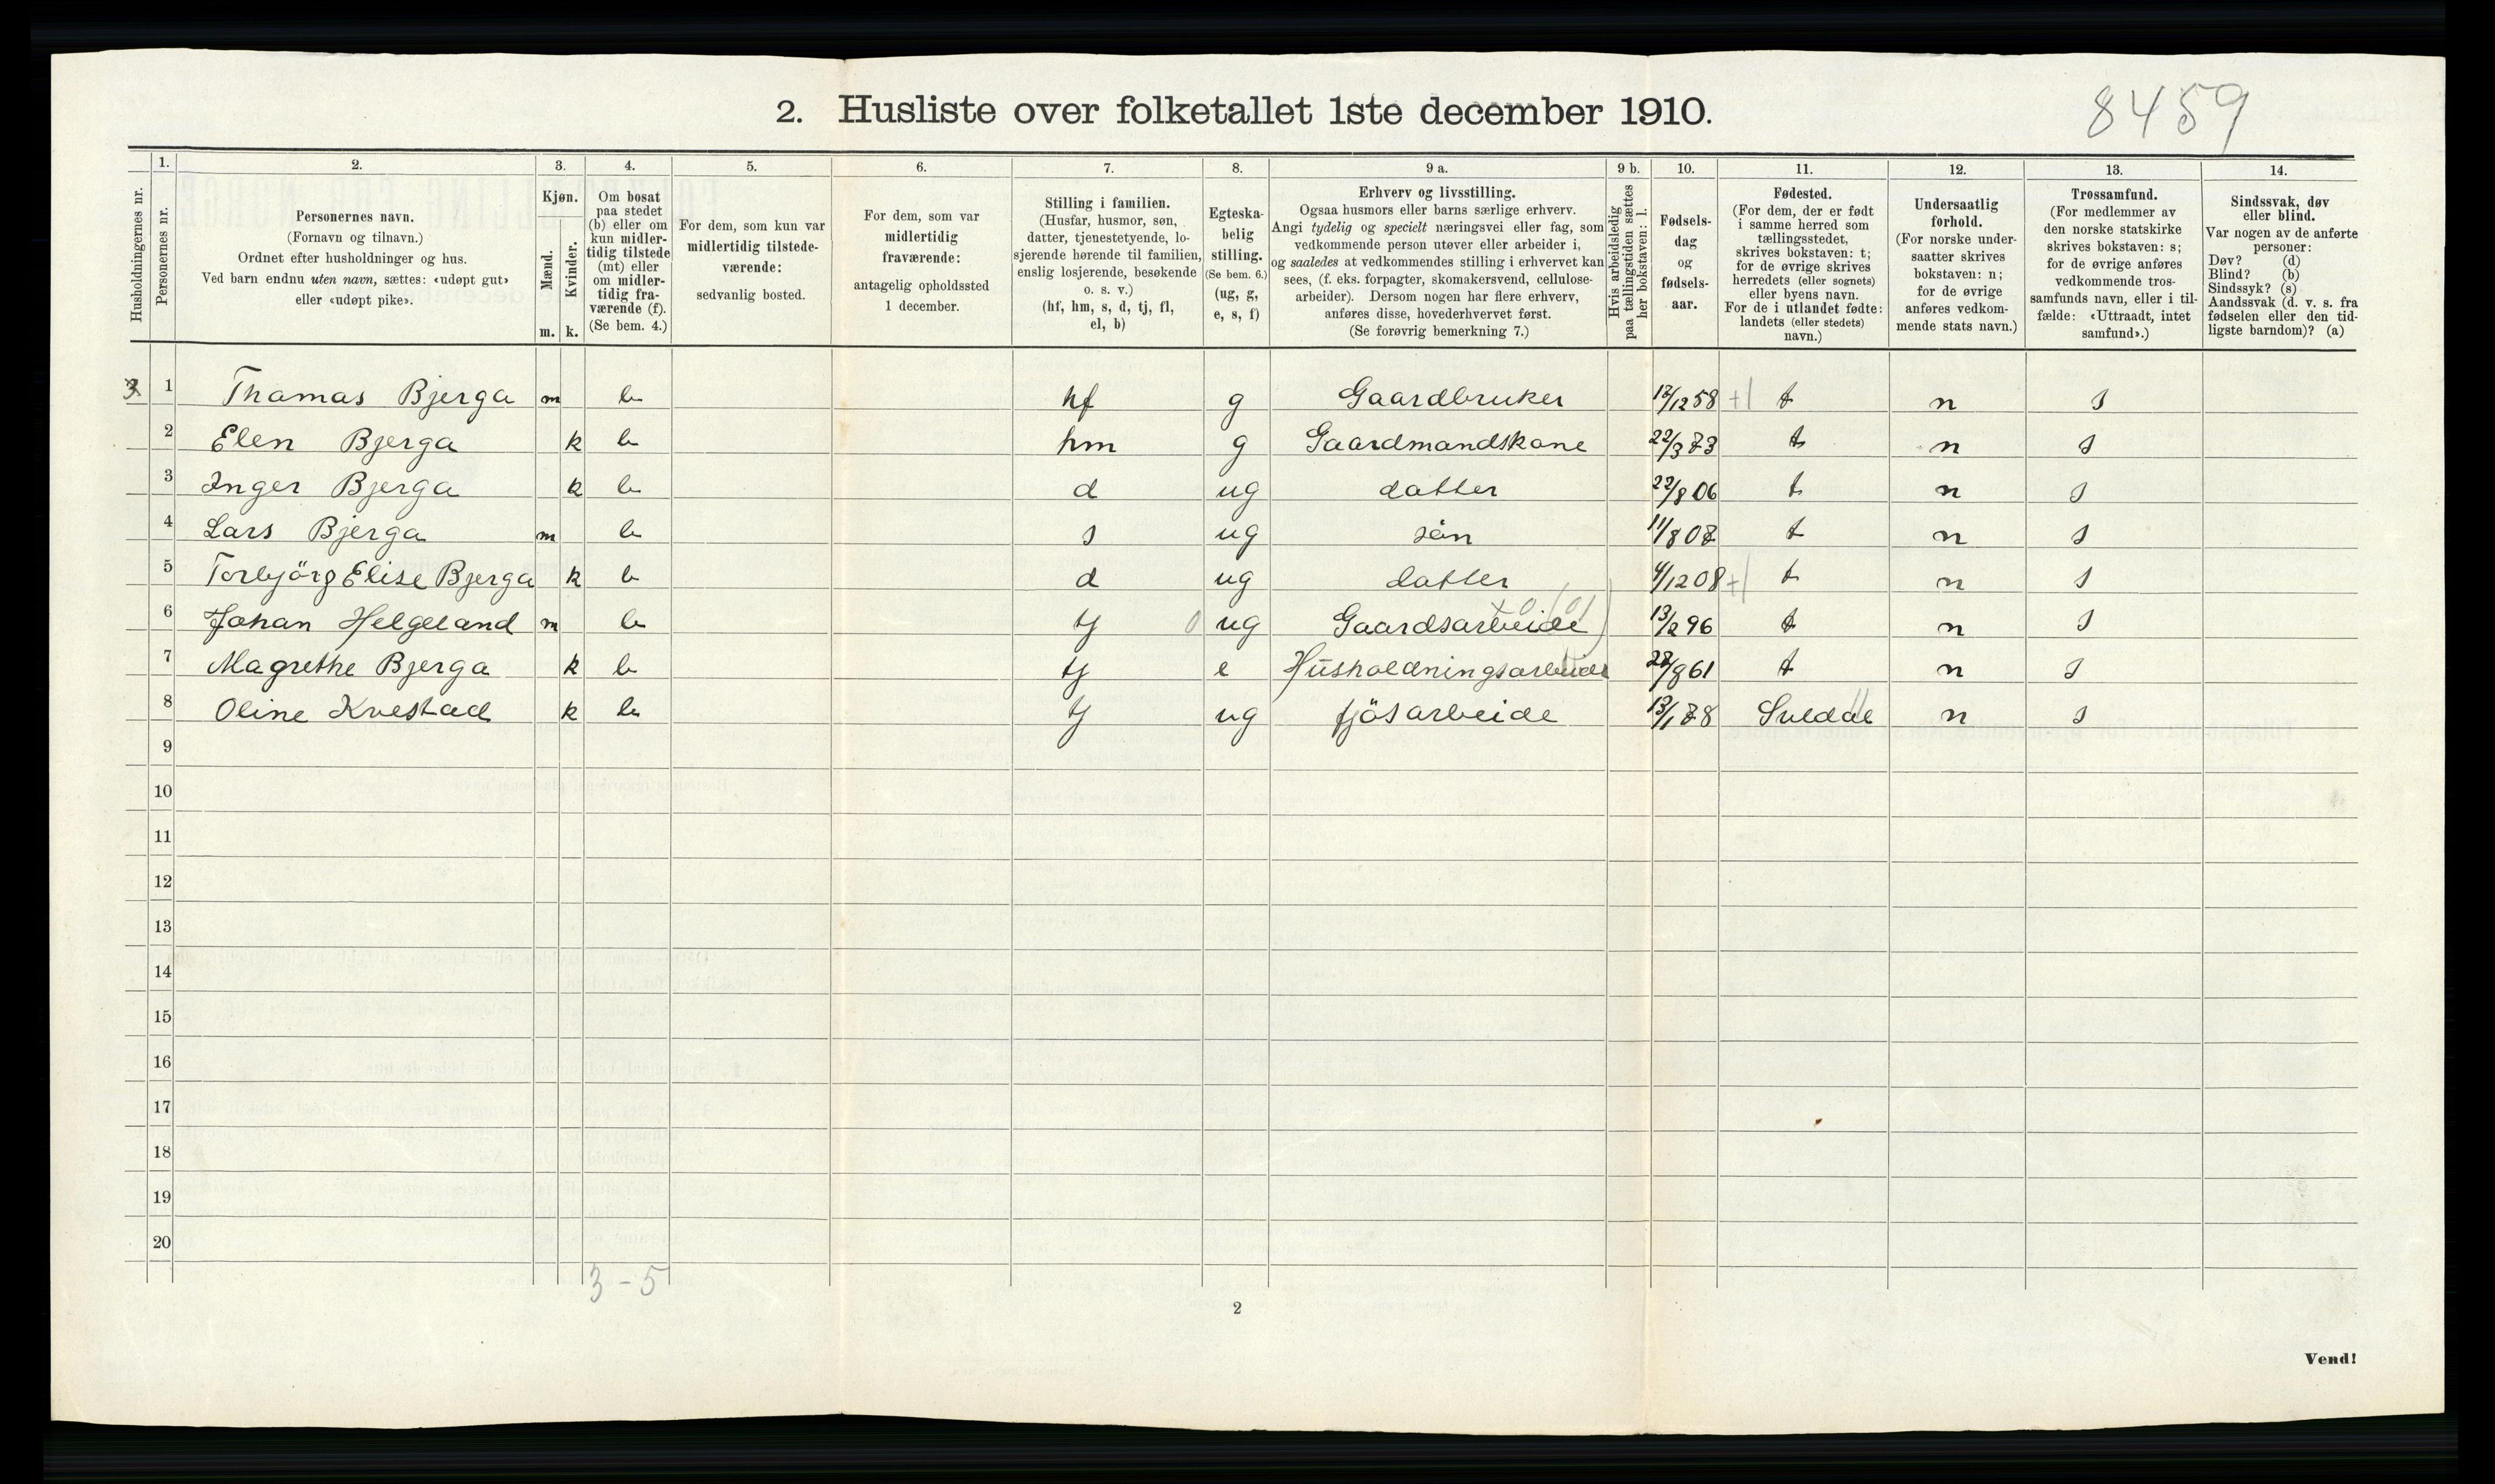 2. Husliste over folketallet 1ste december 1910.
8459
Husholdningernes nr.
1.
Personernes nr.
2.
Personernes navn.
(Fornavn og tilnavn.)
Ordnet efter husholdninger og hus.
Ved barn endnu uten navn, sættes: «udøpt gut»
eller «udøpt pike».
3.
Kjøn.
Mænd.
Kvinder.
m. k.
4.
Om bosat
paa stedet
(b) eller om
kun midler-
tidig tilstede
(mt) eller
om midler-
tidig fra-
værende (f).
(Se bem. 4.)
5.
For dem, som kun var
midlertidig tilstede-
værende:
sedvanlig bosted.
6.
For dem, som var
midlertidig
fraværende:
antagelig opholdssted
1 december.
7.
Stilling i familien.
(Husfar, husmor, søn,
datter, tjenestetyende, lo-
sjerende hørende til familien,
enslig losjerende, besøkende
o. s. v.)
(hf, hm, s, d, tj, fl,
el, b)
8.
Egteska-
belig
stilling.
(Se bem. 6.)
(ug, g,
e, s, f)
9 a.
Erhverv og livsstilling.
Ogsaa husmors eller barns særlige erhverv.
Angi tydelig og specielt næringsvei eller fag, som
vedkommende person utøver eller arbeider i,
og saaledes at vedkommendes stilling i erhvervet kan
sees, (f. eks. forpagter, skomakersvend, cellulose-
arbeider). Dersom nogen har flere erhverv,
anføres disse, hovederhvervet først.
(Se forøvrig bemerkning 7.)
9 b.
Hvis arbeidsledig
paa tællingstiden sættes
her bokstaven: l.
10.
Fødsels-
dag
og
fødsels-
aar.
11.
Fødested.
(For dem, der er født
i samme herred som
tællingsstedet,
skrives bokstaven: t;
for de øvrige skrives
herredets (eller sognets)
eller byens navn.
For de i utlandet fødte:
landets (eller stedets)
navn.)
12.
Undersaatlig
forhold.
(For norske under-
saatter skrives
bokstaven: n;
for de øvrige
anføres vedkom-
mende stats navn.)
13.
Trossamfund.
(For medlemmer av
den norske statskirke
skrives bokstaven: s;
for de øvrige anføres
vedkommende tros-
samfunds navn, eller i til-
fælde: «Uttraadt, intet
samfund».)
14.
Sindssvak, døv
eller blind.
Var nogen av de anførte
personer:
Døv? (d)
Blind? (b)
Sindssyk? (s)
Aandssvak (d. v. s. fra
fødselen eller den tid-
ligste barndom)? (a)
1 Thamas Bjerga m b hf g Gaardbruker 12/12 58 +1 t n s
2 Elen Bjerga k b hm g Gaardmandskone 22/3 73 t n s
3 Inger Bjerga k b d ug datter 22/8 06 t n s
4 Lars Bjerga m b s ug sön 11/8 07 t n s
5 Torbjörg Elise Bjerga k b d ug datter 4/12 08 +1 t n s
6 Johan Helgeland m b tj 0 ug Gaardsarbeide 13/2 96 t n s
7 Magrethe Bjerga k b tj e Husholdningsarbeide 28/8 61 t n s
8 Oline Kvestad k b tj ug fjösarbeide 13/1 78 Suldal n s
9
10
11
12
13
14
15
16
17
18
19
20
3-5
2
Vend!